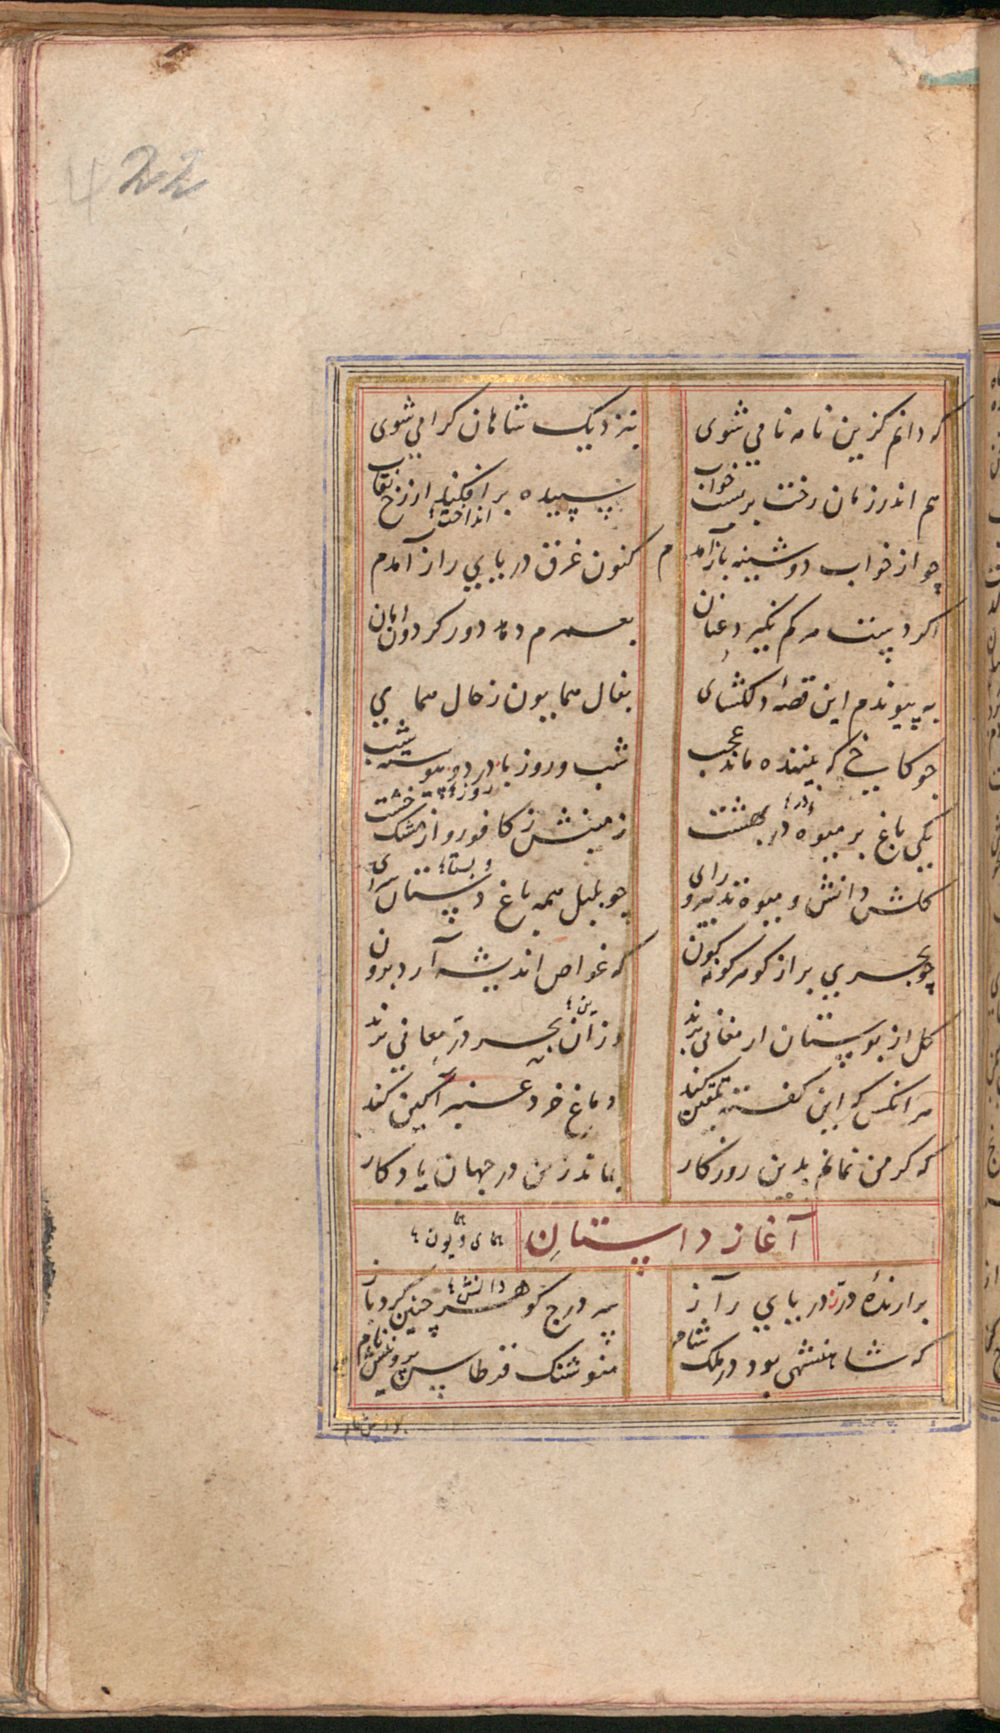 22
که دانم کزین نامه نامی شوی بنزدیک شاهان کرامی شوی
هم اندر زمان رخت بربست خواب سپیده برافکند از رخ نقاب
انداخت
چو از خواب دوشینه باز آمدم کنون غرق دریای راز آمدم
اکر دست مرکم نکیرد عنان بعمرم دهد دور کردون امان
به پیوندم این قصهٔ دلکشای بفال همایون ز حال همای
چو کاخی که بیننده ماند عجب شب و روز با در دو
روز
یکی باغ پر میوهٔ در بهشت زمینش ز کافور و از مشک خشت
کلش دانش و میوه تدبیر و رای چو بلبل همه باغ دستان سرای
چو بحری پر از کوهر کونه کون که غواص اندیشه آرد برون
کل از بوستان ارمغانی برند وزان بحر در معانی برند
هر انکس که این کفته تلقین کند دماغ خرد عنبر آکین کند
که کر من نمانم بدین روزکار بماند ز من در جهان یادکار
آغاز داستان همای و همایون
برارندهٔ در ز دریای راز سر درج کوهر چنین کرد باز
دانش
که شاهنشهی بود در ملک شام منوشنک قرطاس نام